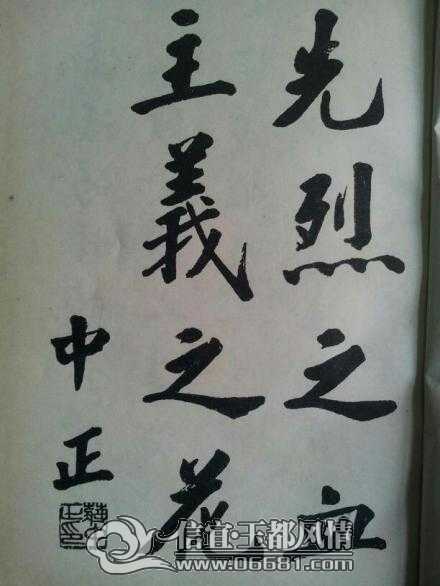 先烈之血
主義之花
中正
信宜·玉都风情
www.06681.com